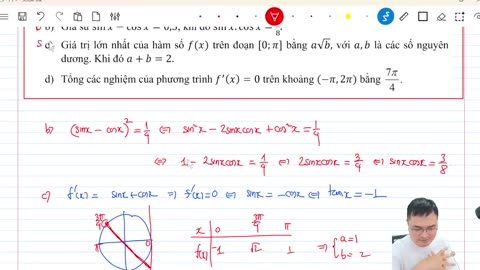 b) Giả sử sinx − cosx = 0,5, khi đó sinx.cosx = /8.
S c) Giá trị lớn nhất của hàm số f(x) trên đoạn [0; π] bằng a√b, với a, b là các số nguyên
dương. Khi đó a + b = 2.
d) Tổng các nghiệm của phương trình f′(x) = 0 trên khoảng (−π, 2π) bằng 7π/4.
b) (sinx − cosx)² = 1/4 ⇔ sin²x − 2sinxcosx + cos²x = 1/4
⇔ 1 − 2sinxcosx = 1/4 ⇔ 2sinxcosx = 3/4 ⇔ sinxcosx = 3/8
c) f'(x) = sinx + cosx ⇒ f'(x) = 0 ⇔ sinx = −cosx ⇔ tanx = −1
3π/4
π 0
x 0 3π/4 π
f(x) −1 √2 1 ⇒ { a = 1
b = 2